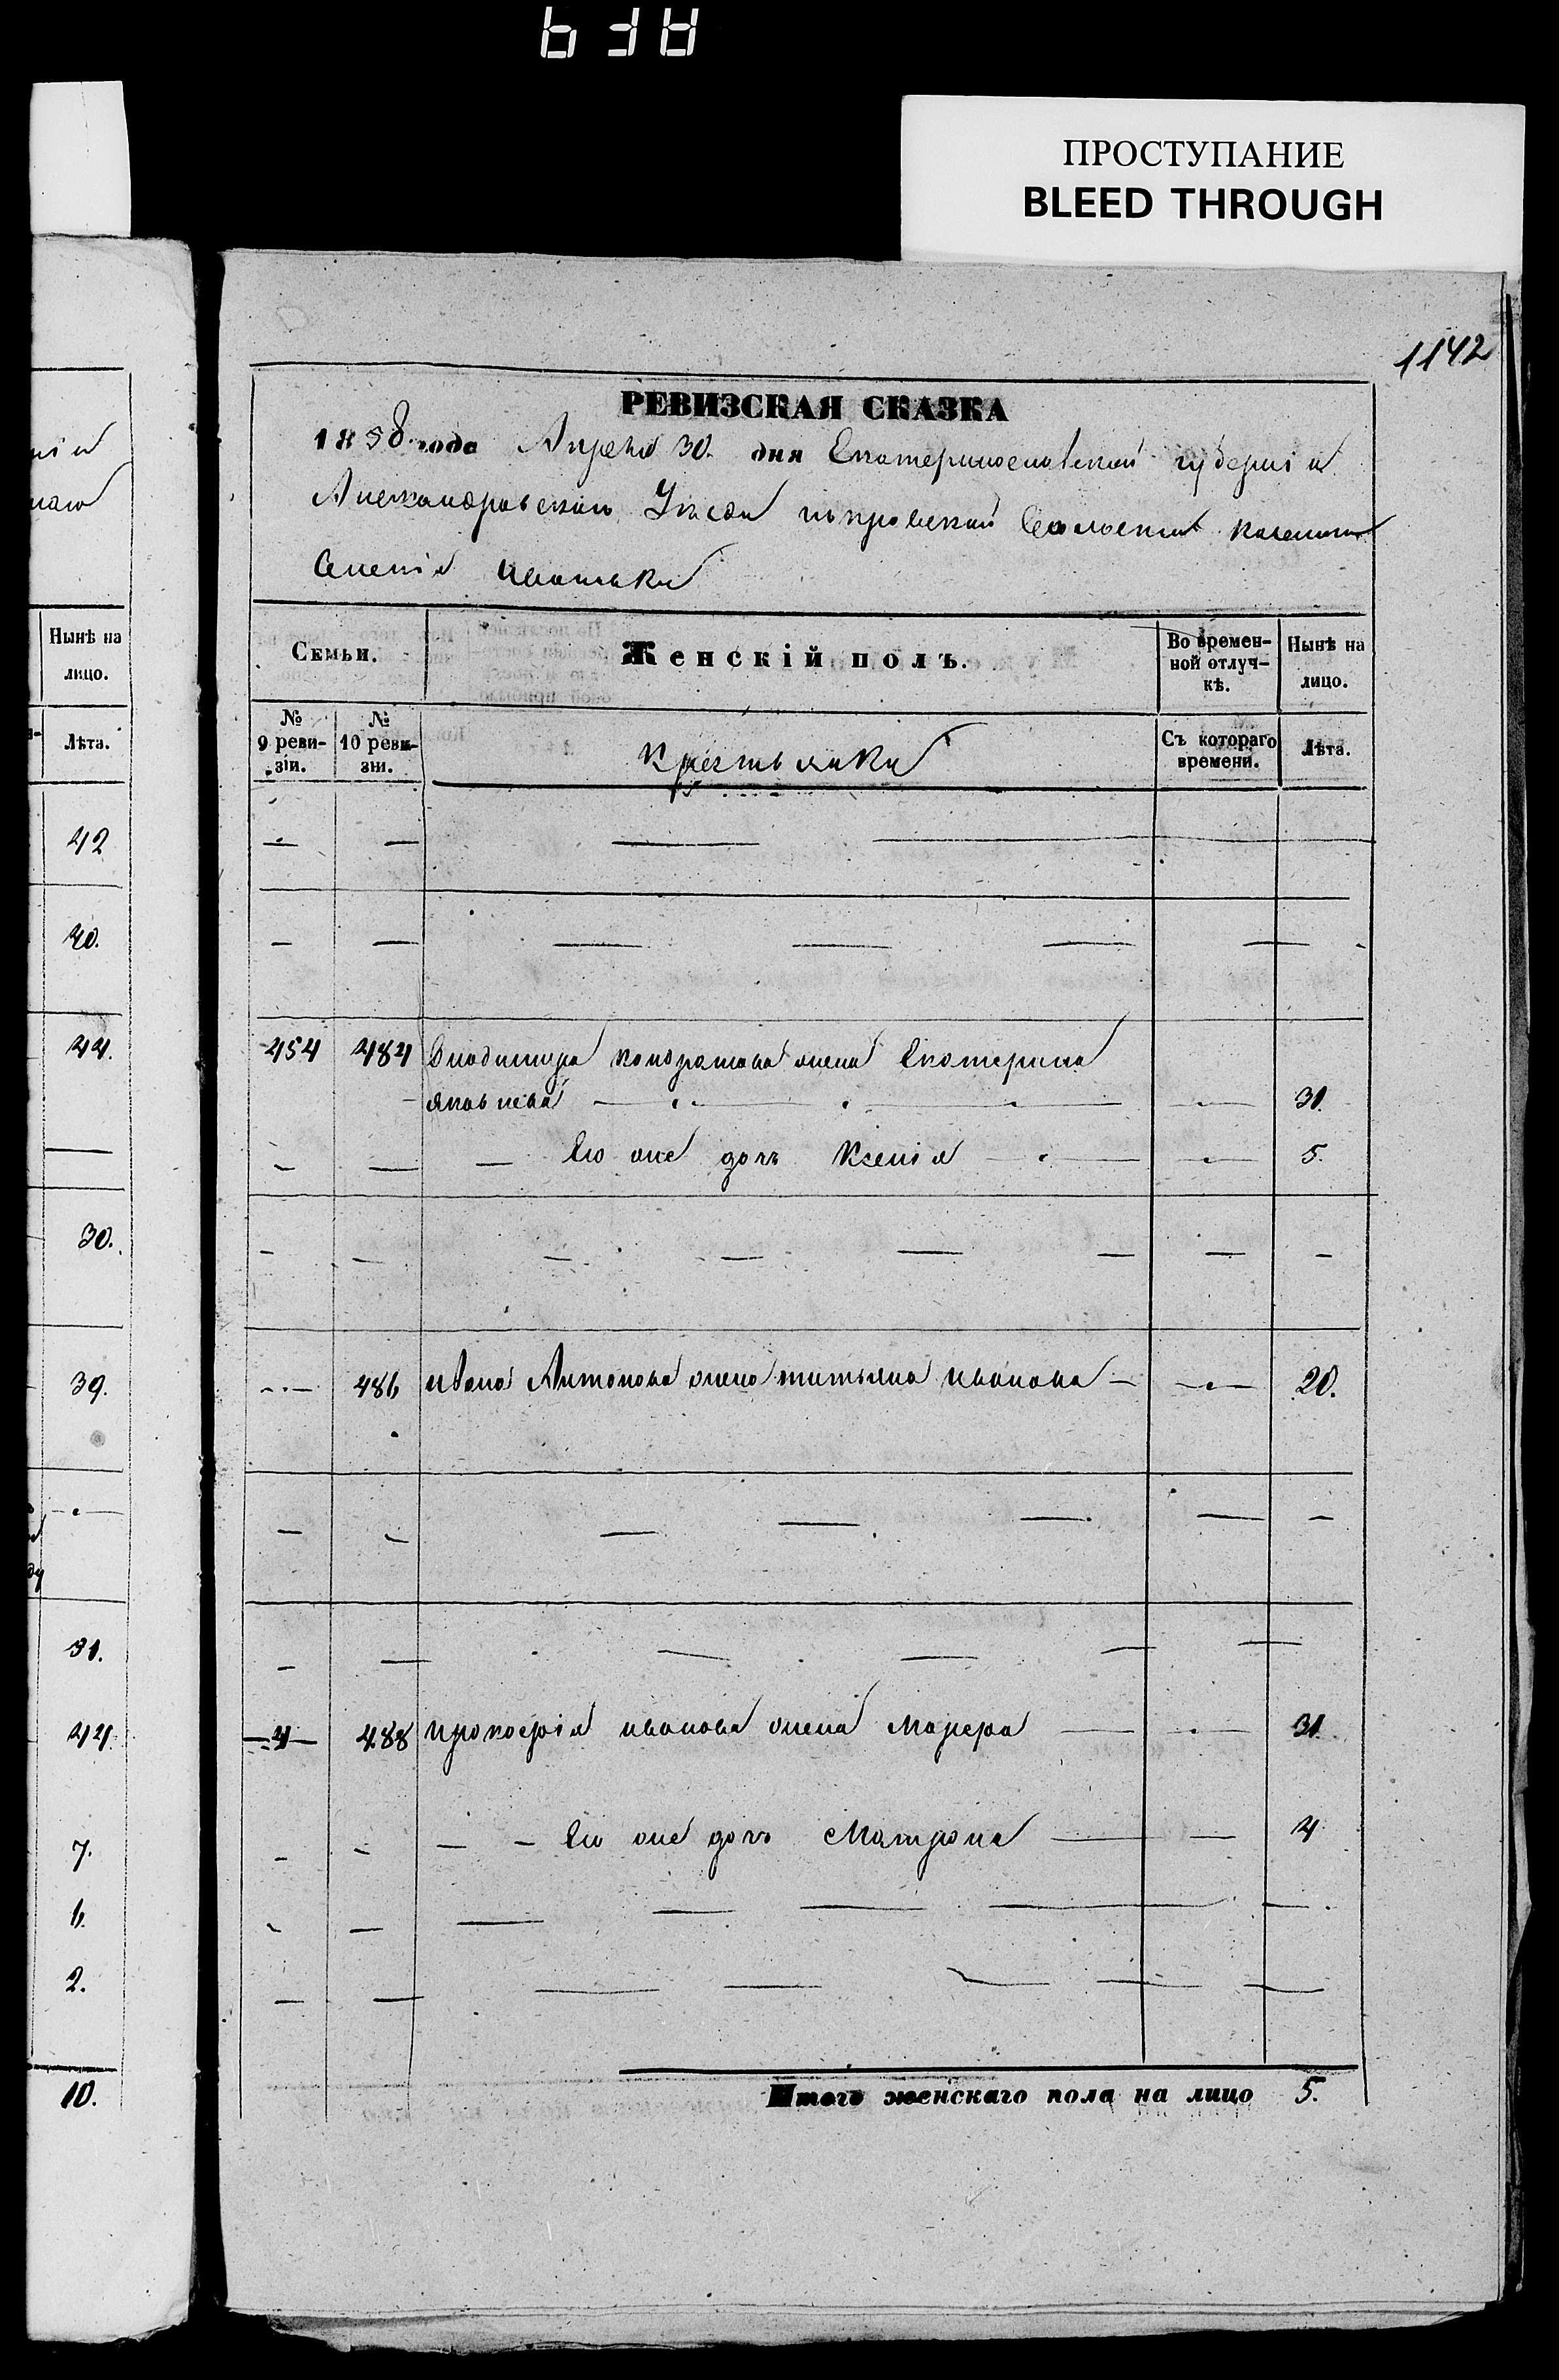 ПРОСТУПАНИЕ
BLEED THROUGH
1142
РЕВИЗСКАЯ СКАЗКА
1858 года Апреля 30. дня Екатеринославской губерніи
Александровскаго Уезда покровской Волости казеннаго
Селенія Ивановки
Семьи.
Женскій полъ.
Во времен-
ной отлуч-
кѣ.
Нынѣ на
лицо.
№
9 реви-
зіи.
№
10 реви-
зіи.
Крестьянки
Съ котораго
времени.
Лѣта.
454 484 Владимира кондратова жена Екатерина
яковлева 31.
Его же дочь Ксенія 5.
486 ивана Антонова жена татьяна иванова 20.
4 488 прокофія иванова жена 31.
Его же дочь Матрона 4
Итого женскаго пола на лицо 5.
Нынѣ на
лицо.
Лѣта.
42
40.
44.
30.
39.
31.
44.
7.
6.
2.
10.